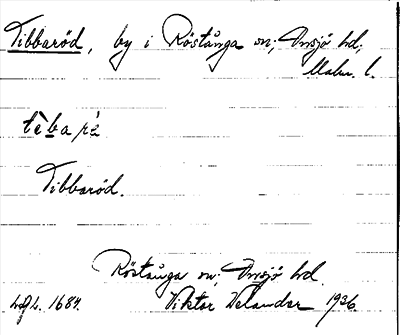 Tibbaröd, by i Röstånga sn; Onsjö hd;
Malm. l.
tèbaré
Tibbaröd.
Röstånga sn; Onsjö hd.
1684. Viktor Velander 1936.